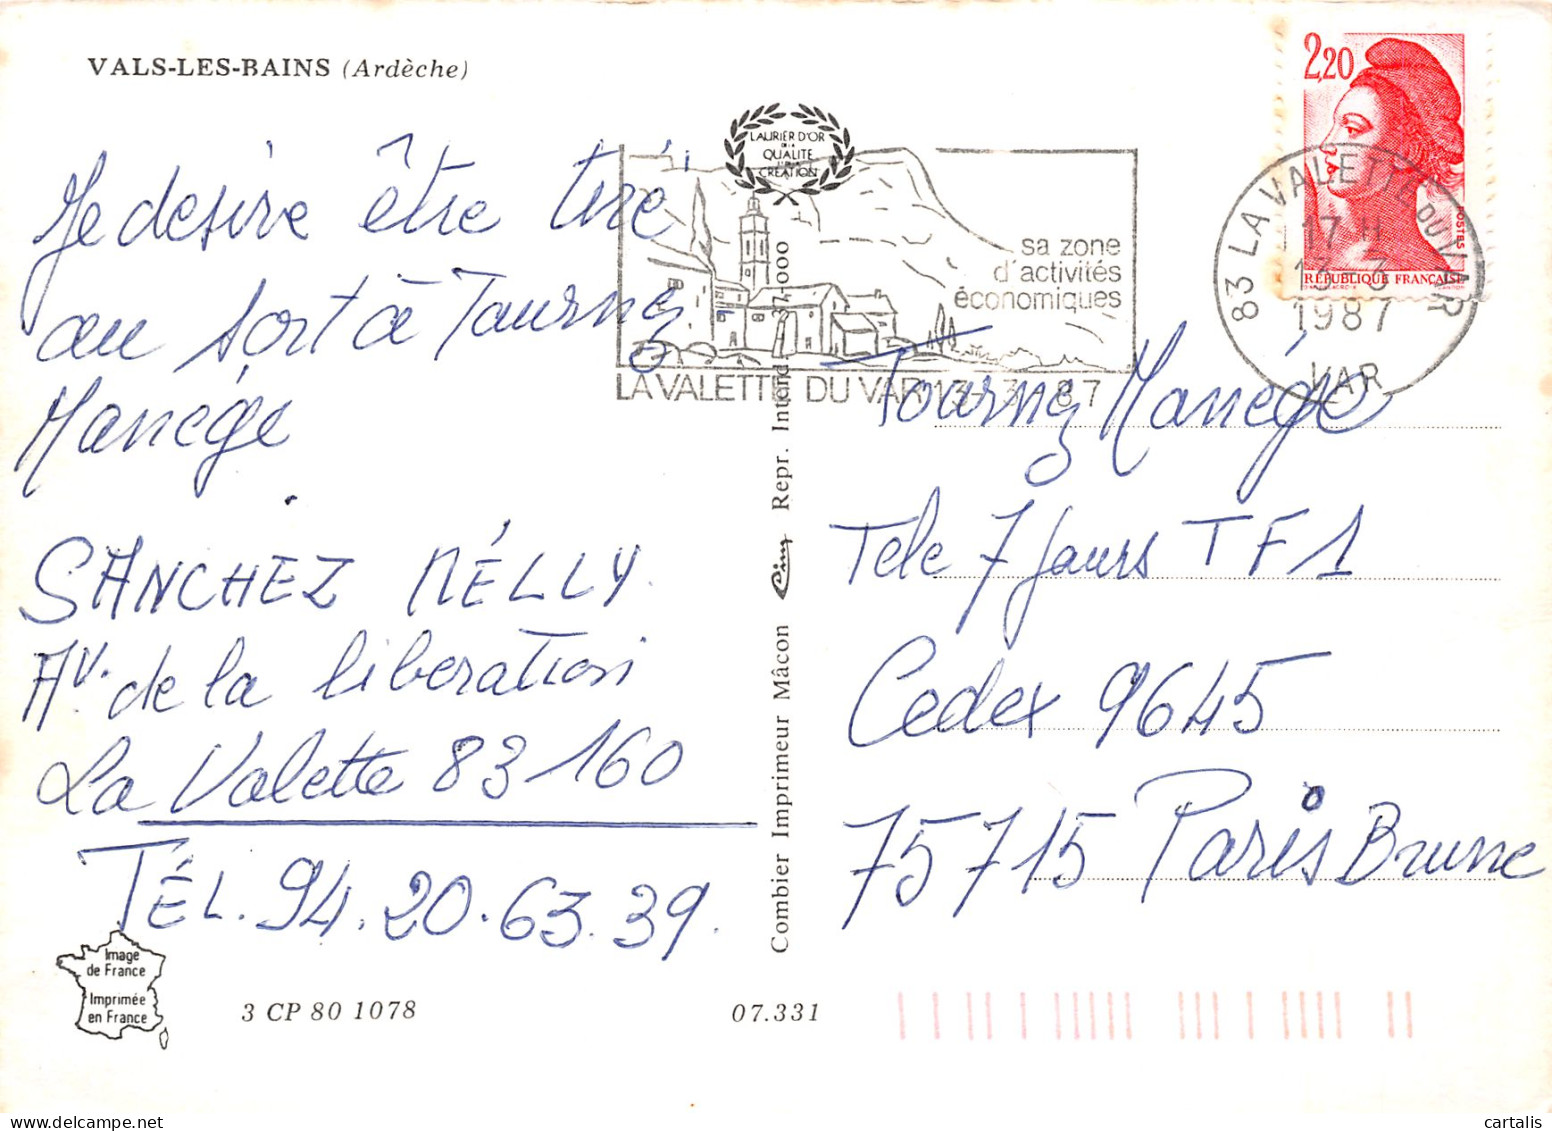 VALS-LES-BAINS (Ardèche)
Je desire être tiré
au sort à Tournez
Manège
SANCHEZ NÉLLY.
Av. de la liberation
La Valette 83160
TÉL. 94.20.63.39.
Image
de France
Imprimée
en France
3 CP 80 1078
07.331
LAURIER D'OR
DE LA
QUALITE
CREATION
sa zone
d'activités
économiques
LA VALETTE DU VAR 13-3-87
Combier Imprimeur Mâcon Cim Repr. Interd. 37-000
2,20
POSTES
REPUBLIQUE FRANÇAISE
83 LA VALETTE DU VAR
17 H
13-3
1987
VAR
Tournez Manège
Tele 7 Jours TF1
Cedex 9645
75715 Paris Brune